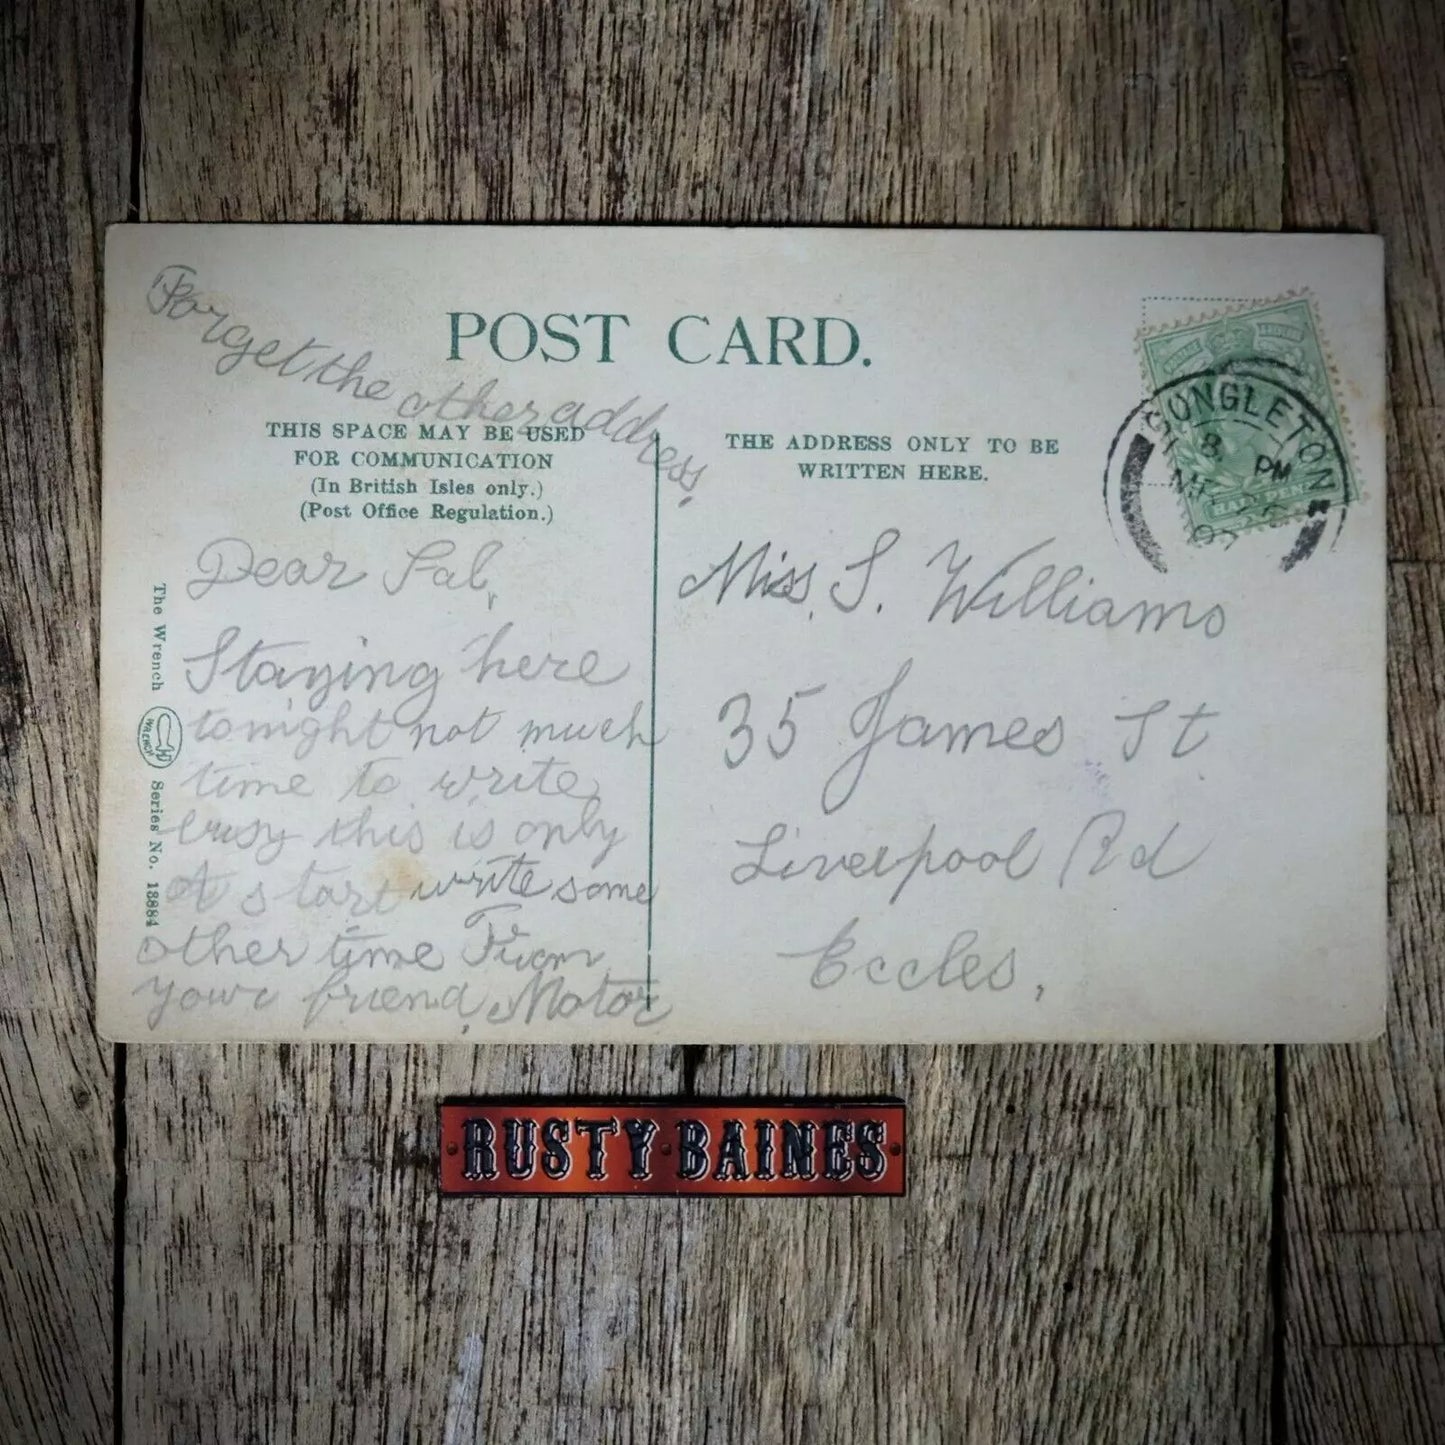 Forget the other address,
POST CARD.
THIS SPACE MAY BE USED
FOR COMMUNICATION
(In British Isles only.)
(Post Office Regulation.)
THE ADDRESS ONLY TO BE
WRITTEN HERE.
CONGLETON
8 PM
Dear Sal,
Staying here
tonight not much
time to write
this is only
A start write some
other time From
your friend, Motor
Miss. S. Williams
35 James St
Liverpool Rd
Eccles,
The Wrench
WRENCH
Series No. 13884
RUSTY BAINES